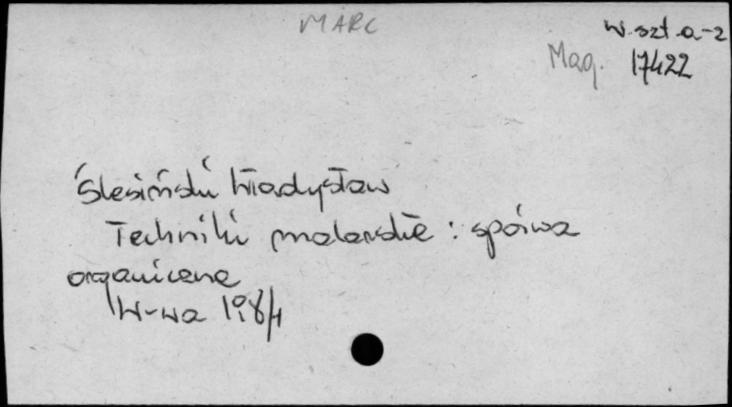 MARC
w. szt. a-z
Mag. 17422
Ślesiński Władysław
Techniki malarskie : spoiwa
organiczne
W-wa 1984